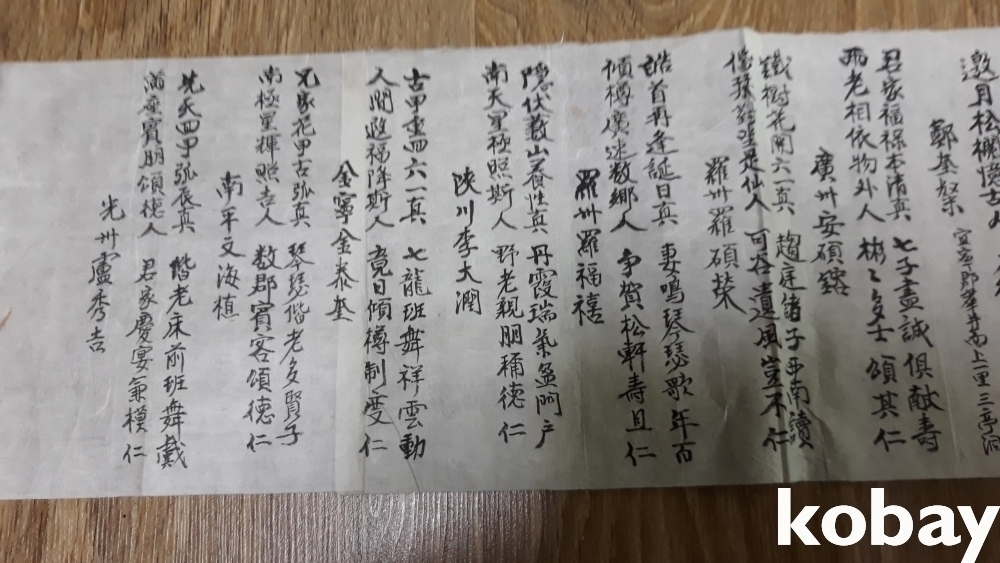 邀月松櫩懷古
鄭奎燦
君家福祿本清真 七子盡誠俱献壽
兩老相依物外人 彬々多士頌其仁
廣州安碩鎔
鐵樹花開六一真 趨庭諸子西南讀
儘發翁望是仙人 可谷遺風豈不仁
羅州羅碩榮
皓首再逢誕日真 妻鳴琴瑟歌年百
傾樽廣速数鄉人 争賀松軒壽且仁
羅州羅福禧
隱伏蓺山養性真 丹霞瑞氣盈門戶
南天星極照斯人 野老親朋稱德仁
陜川李大潤
古甲重回六一真 七龍班舞祥雲動
人間遐福降斯人 竟日傾樽制度仁
金寧金泰奎
兄家花甲古弧真 琴瑟偕老多賢子
南極星輝照吉人 数郡賓客頌德仁
南平文海植
先天四甲弧辰真 偕老床前班舞戱
滿座賓朋頌德人 君家慶宴兼模仁
光州盧秀吉
kobay